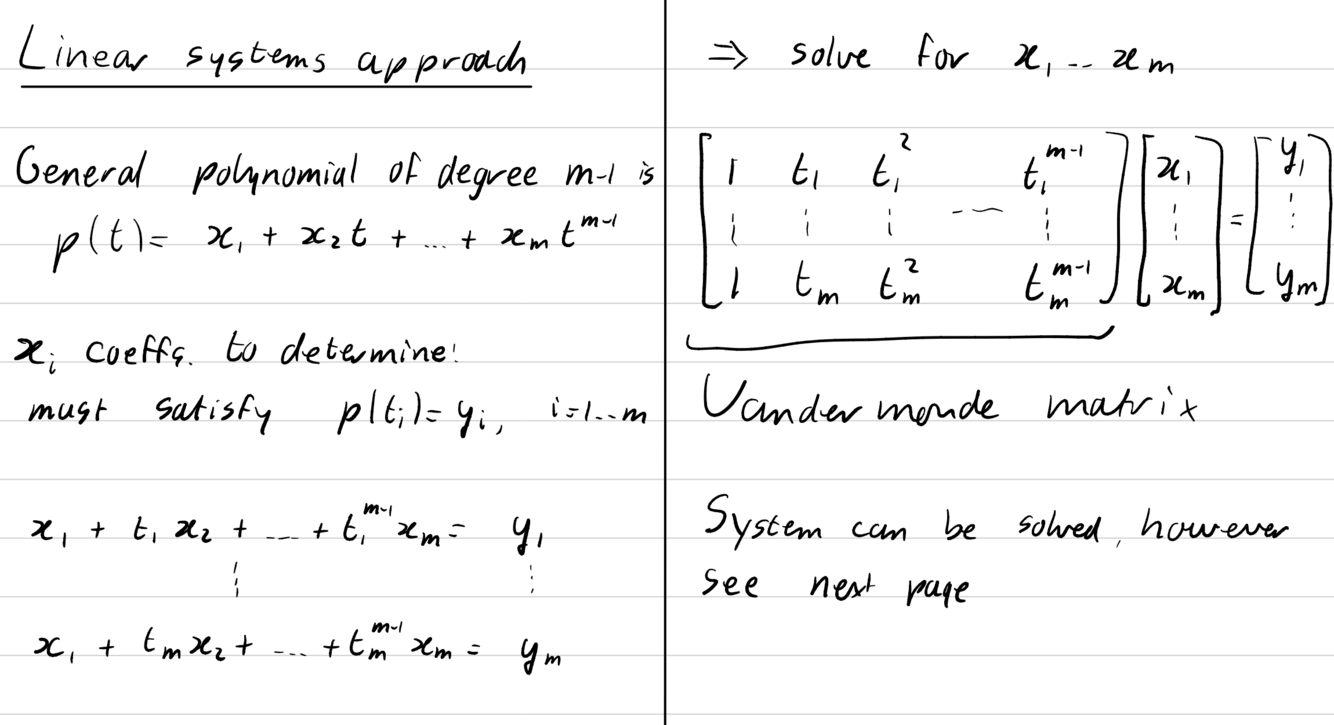 Linear systems approach
General polynomial of degree m-1 is
p(t) = x₁ + x₂t + ... + xₘ t^(m-1)
xᵢ coeffs. to determine:
must satisfy p(tᵢ) = yᵢ, i=1..m
x₁ + t₁ x₂ + .... + t₁^(m-1) xₘ = y₁
⋮ ⋮
x₁ + tₘ x₂ + .... + tₘ^(m-1) xₘ = yₘ
⇒ solve for x₁ .. xₘ
[1 t₁ t₁² t₁^(m-1)] [x₁] [y₁]
[⋮ ⋮ ⋮ ... ⋮] [⋮] = [⋮]
[1 tₘ tₘ² tₘ^(m-1)] [xₘ] [yₘ]
Vandermonde matrix
System can be solved, however
see next page